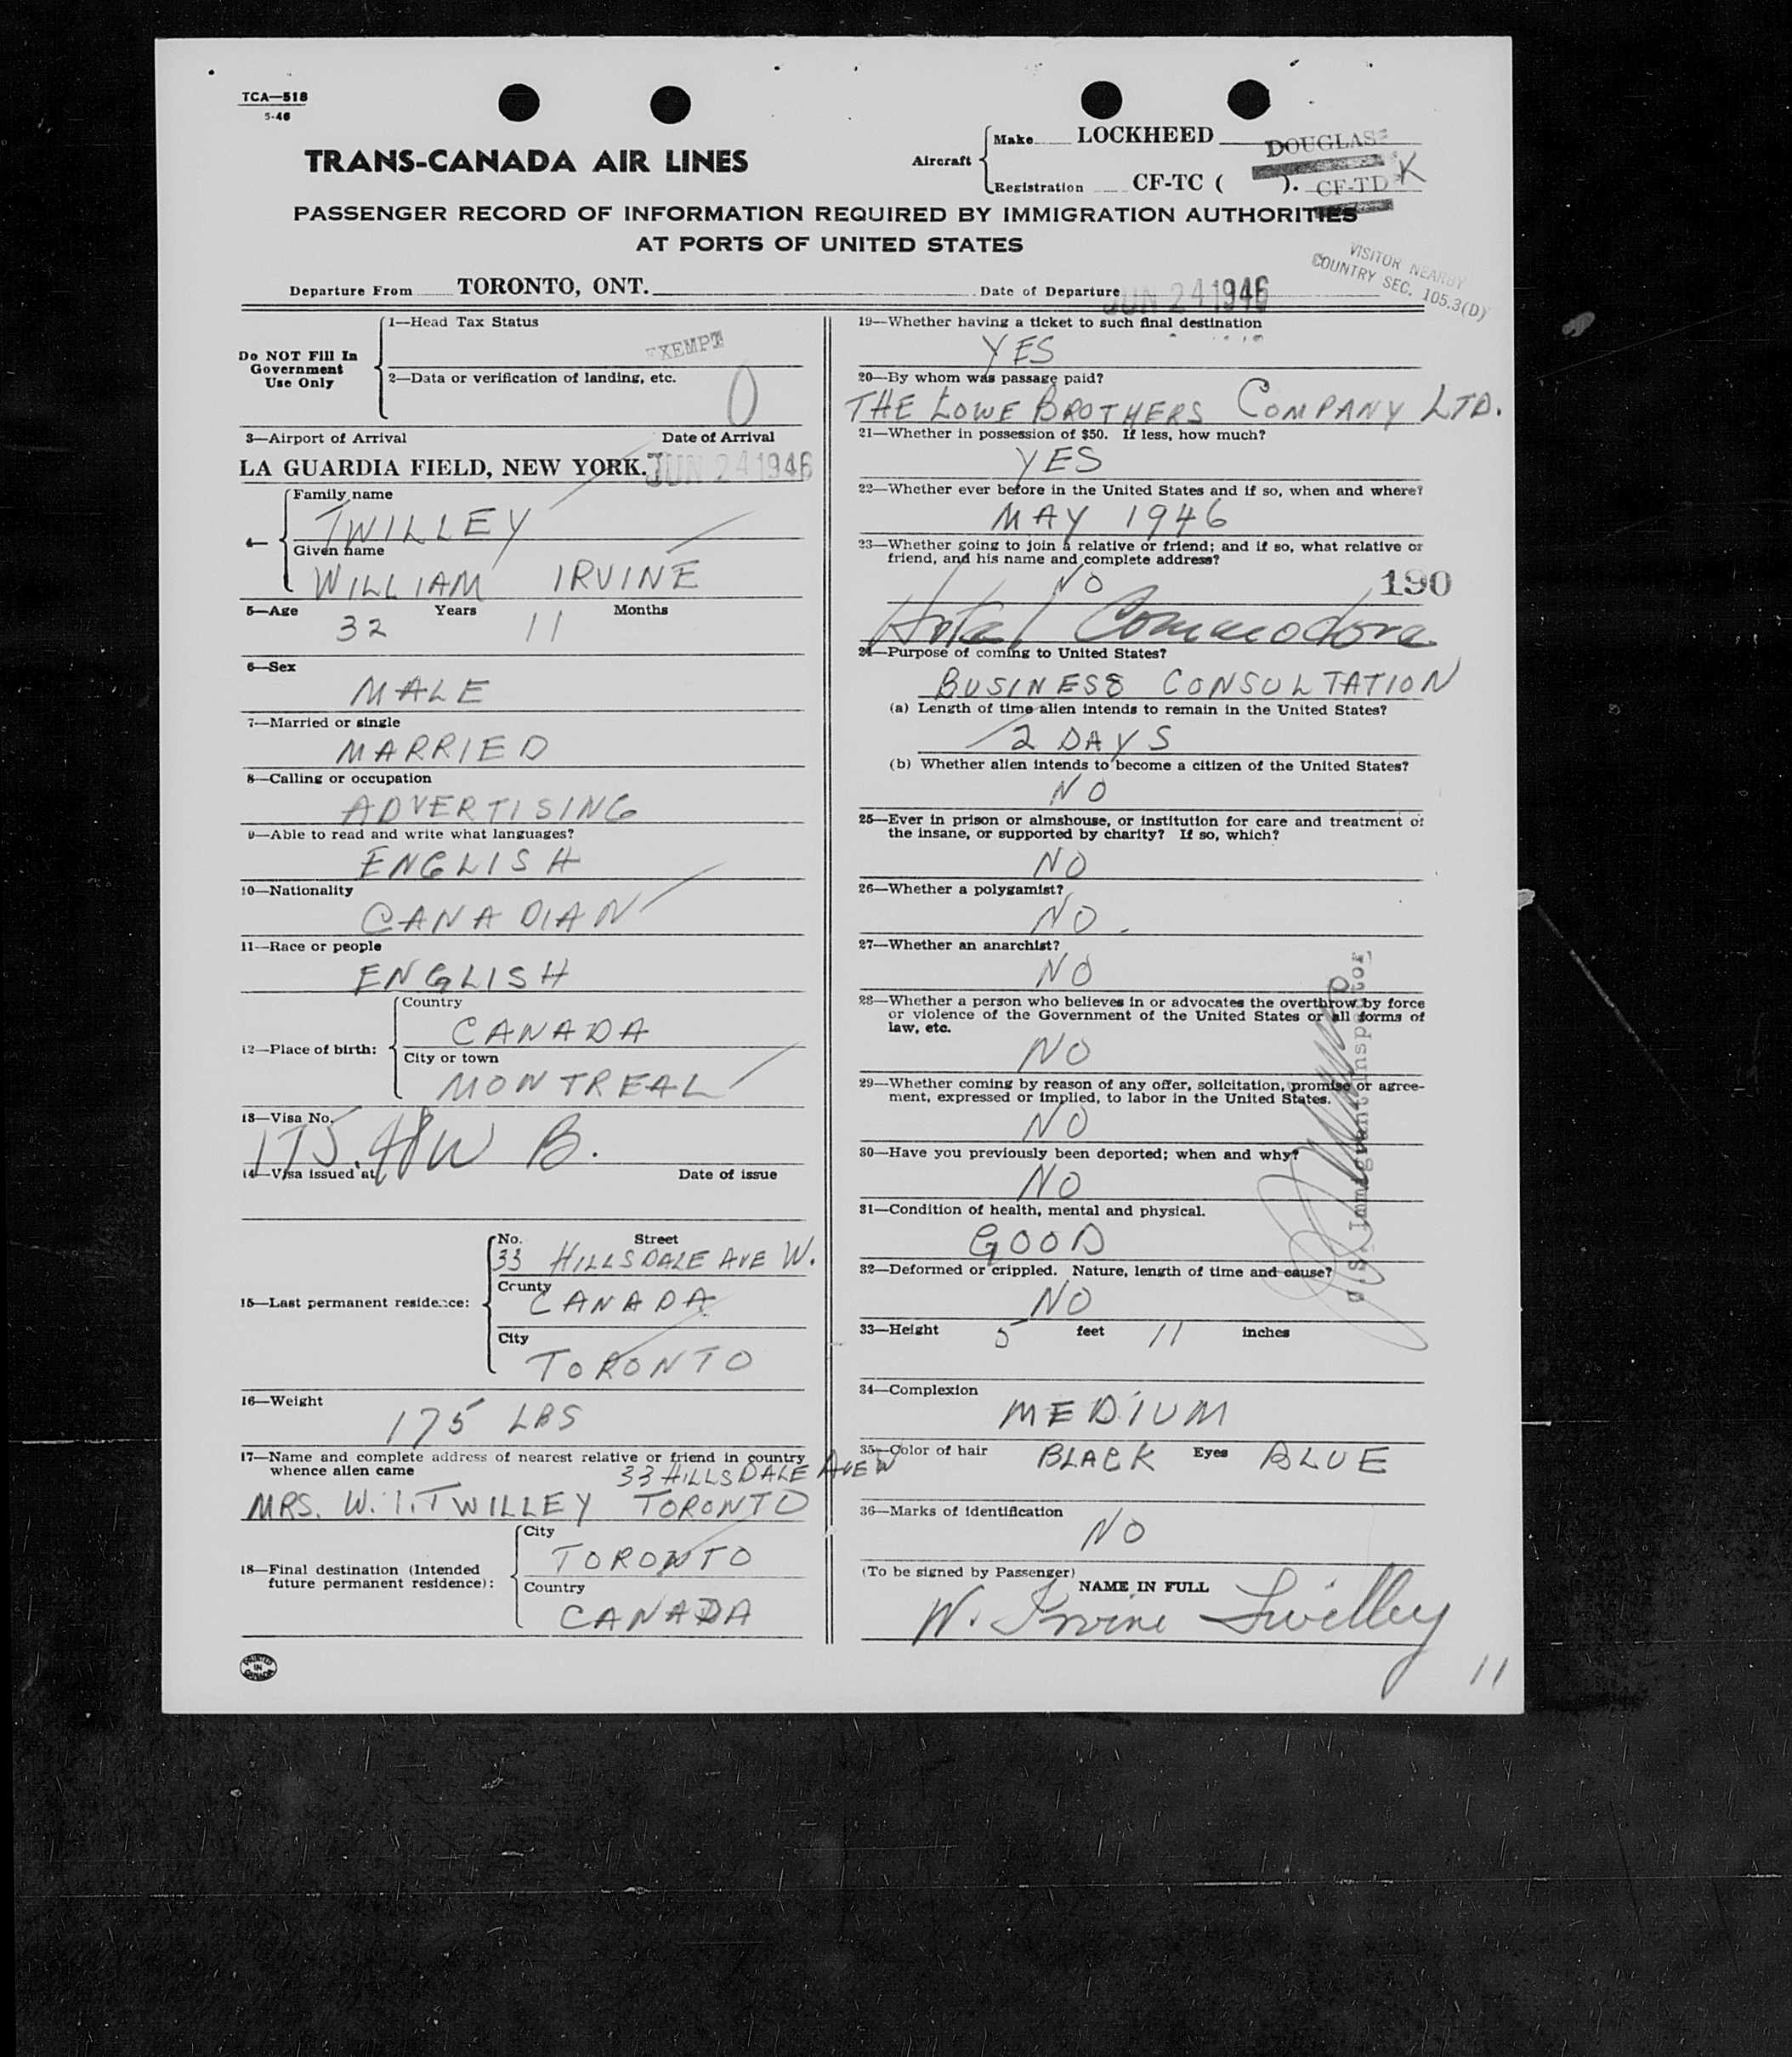 TCA—518
5-46
TRANS-CANADA AIR LINES
Aircraft
Make LOCKHEED DOUGLAS
Registration CF-TC ( ). CF-TD K
PASSENGER RECORD OF INFORMATION REQUIRED BY IMMIGRATION AUTHORITIES
AT PORTS OF UNITED STATES
VISITOR NEARBY
COUNTRY SEC. 105.3(D)
Departure From TORONTO, ONT. Date of Departure JUN 24 1946
Do NOT Fill In
Government
Use Only
1—Head Tax Status
EXEMPT
2—Data or verification of landing, etc.
0
3—Airport of Arrival Date of Arrival
LA GUARDIA FIELD, NEW YORK. JUN 24 1946
4—
Family name
TWILLEY
Given name
WILLIAM IRVINE
5—Age Years Months
32 11
6—Sex
MALE
7—Married or single
MARRIED
8—Calling or occupation
ADVERTISING
9—Able to read and write what languages?
ENGLISH
10—Nationality
CANADIAN
11—Race or people
ENGLISH
12—Place of birth:
Country
CANADA
City or town
MONTREAL
13—Visa No.
175. B.
14—Visa issued at Date of issue
15—Last permanent residence:
No. Street
33 HILLSDALE AVE W.
County
CANADA
City
TORONTO
16—Weight
175 LBS
17—Name and complete address of nearest relative or friend in country
whence alien came
33 HILLSDALE AVE W
MRS. W. I. TWILLEY TORONTO
18—Final destination (Intended
future permanent residence):
City
TORONTO
Country
CANADA
PRINTED
IN
CANADA
19—Whether having a ticket to such final destination
YES
20—By whom was passage paid?
THE LOWE BROTHERS COMPANY LTD.
21—Whether in possession of $50. If less, how much?
YES
22—Whether ever before in the United States and if so, when and where?
MAY 1946
23—Whether going to join a relative or friend; and if so, what relative or
friend, and his name and complete address?
NO
190
Hotel Commodore
24—Purpose of coming to United States?
BUSINESS CONSULTATION
(a) Length of time alien intends to remain in the United States?
2 DAYS
(b) Whether alien intends to become a citizen of the United States?
NO
25—Ever in prison or almshouse, or institution for care and treatment of
the insane, or supported by charity? If so, which?
NO
26—Whether a polygamist?
NO.
27—Whether an anarchist?
NO
28—Whether a person who believes in or advocates the overthrow by force
or violence of the Government of the United States or all forms of
law, etc.
NO
29—Whether coming by reason of any offer, solicitation, promise or agree-
ment, expressed or implied, to labor in the United States.
NO
30—Have you previously been deported; when and why?
NO
31—Condition of health, mental and physical.
GOOD
32—Deformed or crippled. Nature, length of time and cause?
NO
33—Height 5 feet 11 inches
34—Complexion
MEDIUM
35—Color of hair BLACK Eyes BLUE
36—Marks of identification
NO
U.S. Immigrant Inspector
(To be signed by Passenger)
NAME IN FULL
W. Irvine Twilley
11